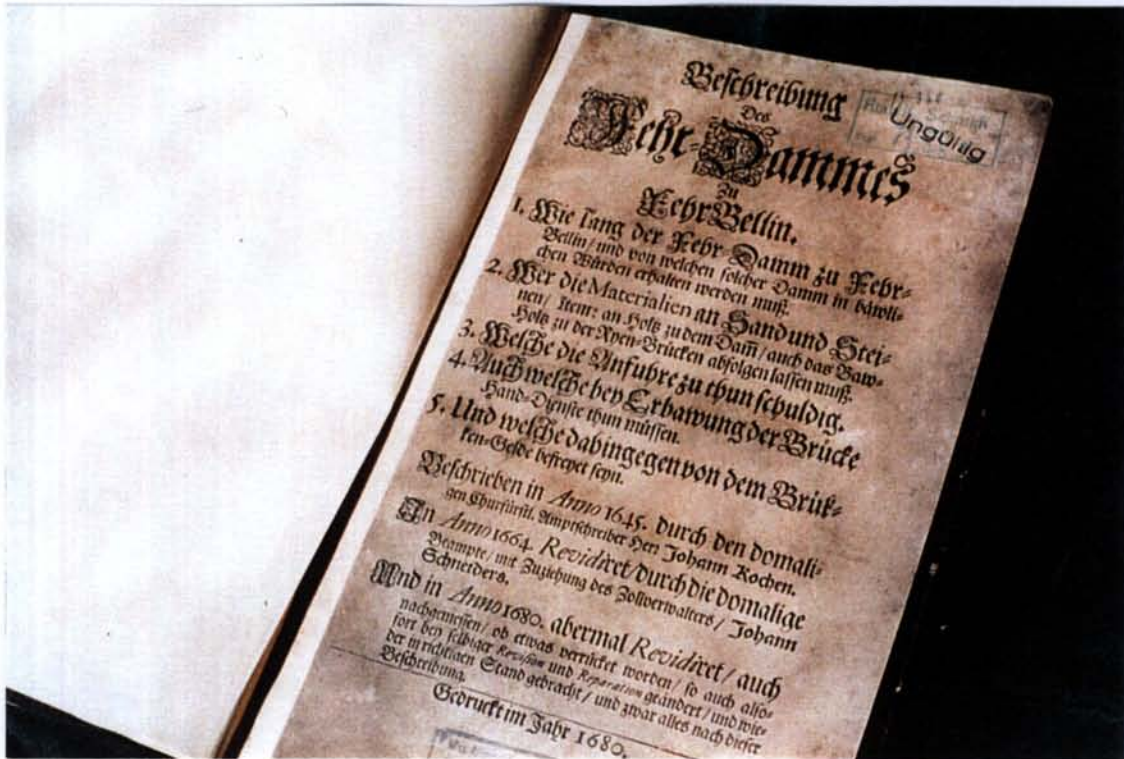 Beschreibung
Des
Fehr-Dammes
Zu
FehrBellin.
1. Wie lang der Fehr-Damm zu Fehr-
Bellin/ und von welchen solcher Damm in bäwli-
chen Würden erhalten werden muß.
2. Wer die Materialien an Sand und Stei-
nen/ Item: an Holtz zu dem Dam̃/ auch das Baw-
Holtz zu der Ryen-Brücken abfolgen lassen muß.
3. Welche die Anfuhre zu thun schuldig.
4. Auch welche bey Erbawung der Brücke
Hand-Dienste thun müssen.
5. Und welche dahingegen von dem Brük-
ken-Gelde befreyet seyn.
Beschrieben in Anno 1645. durch den domali-
gen Churfürstl. Amptschreiber Herr Johann Kochen.
In Anno 1664. Revidiret/ durch die domalige
Beampte/ mit Zuziehung des Zollverwalters/ Johann
Schneiders.
Und in Anno 1680. abermal Revidiret/ auch
nachgemessen/ ob etwas verrücket worden/ so auch also-
fort bey selbiger Revision und Reparation geändert/ und wie-
der in richtigen Stand gebracht/ und zwar alles nach dieser
Beschreibung.
Gedruckt im Jahr 1680.
Ungültig